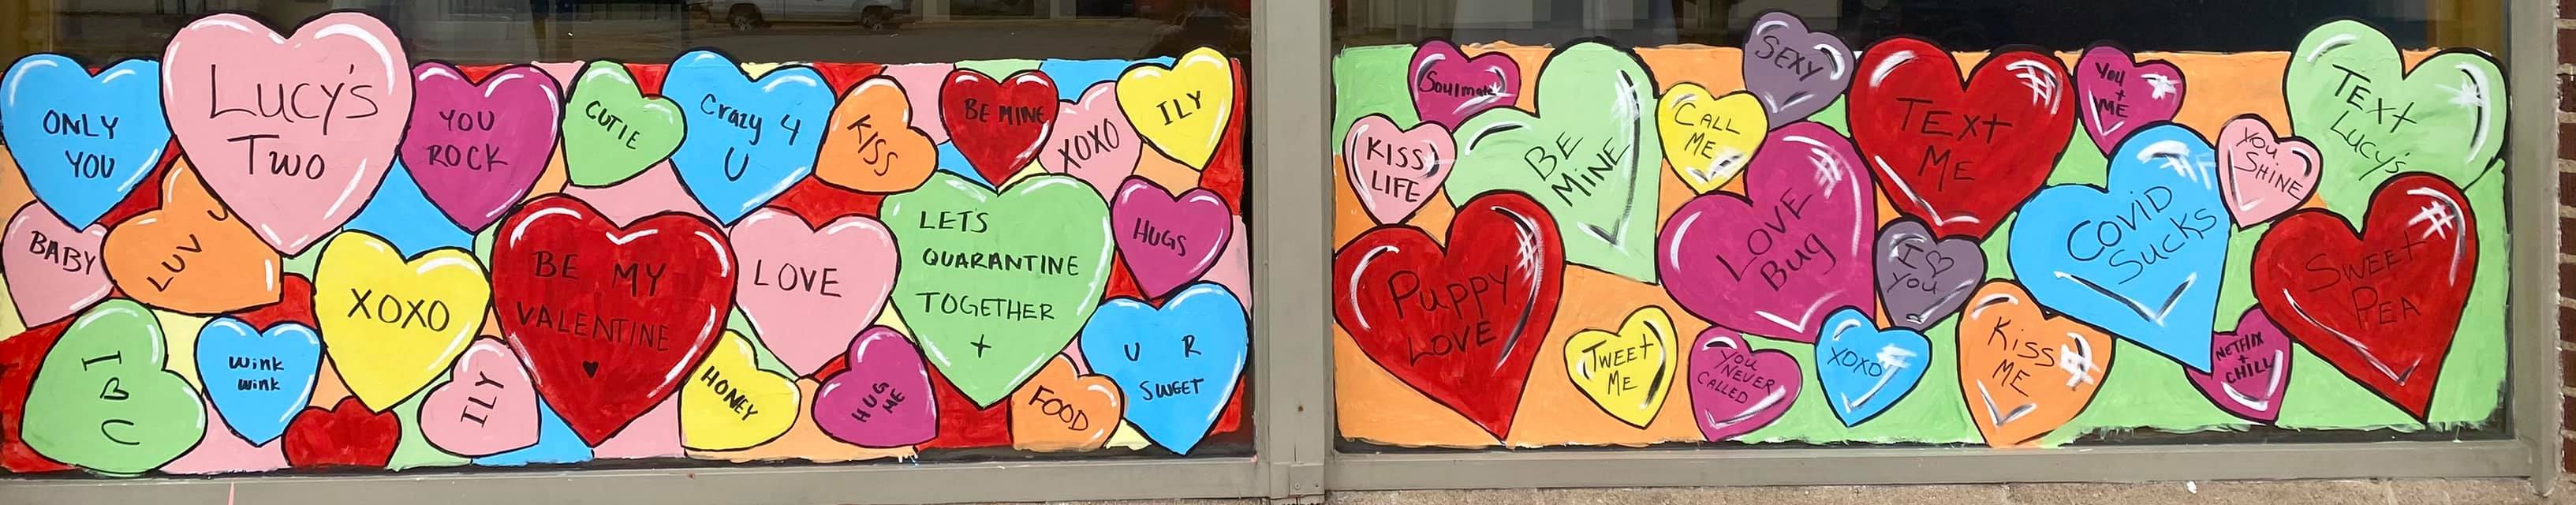 ONLY
YOU
LUCY'S
TWO
YOU
ROCK
CUTIE
Crazy 4
U
KISS
BE MINE
XOXO
ILY
BABY
LUV U
XOXO
BE MY
VALENTINE
LOVE
LET'S
QUARANTINE
TOGETHER
+
HUGS
I B U
Wink
wink
ILY
HONEY
HUG
ME
FOOD
U R
SWEET
Soulmate
KISS
LIFE
BE
MINE
CALL
ME
SEXY
TEXT
ME
YOU
+
ME
TEXT
LUCY'S
YOU
SHINE
PUPPY
LOVE
LOVE
Bug
I
YOU
COVID
SUCKS
SWEET
PEA
TWEET
ME
YOU
NEVER
CALLED
XOXO
KISS
ME
NETFLIX
+
CHILL